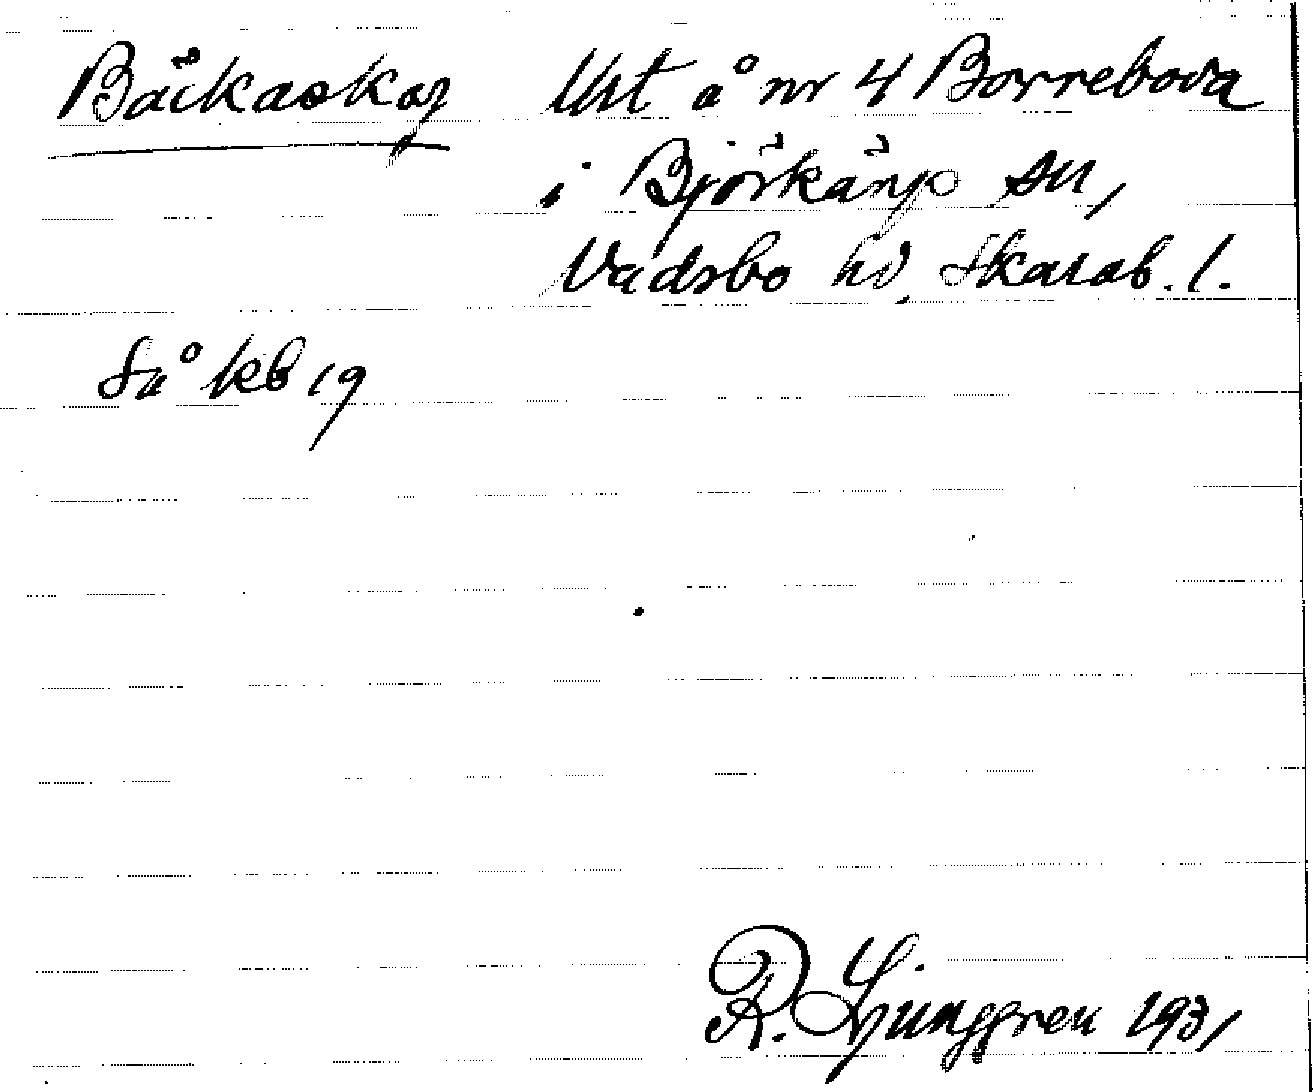 Bäckaskog Urt å nr 4 Borrebova
i Björkäng sn,
Vadsbo hd, Skarab. l.
Så kb 19
R. Ljunggren 1931